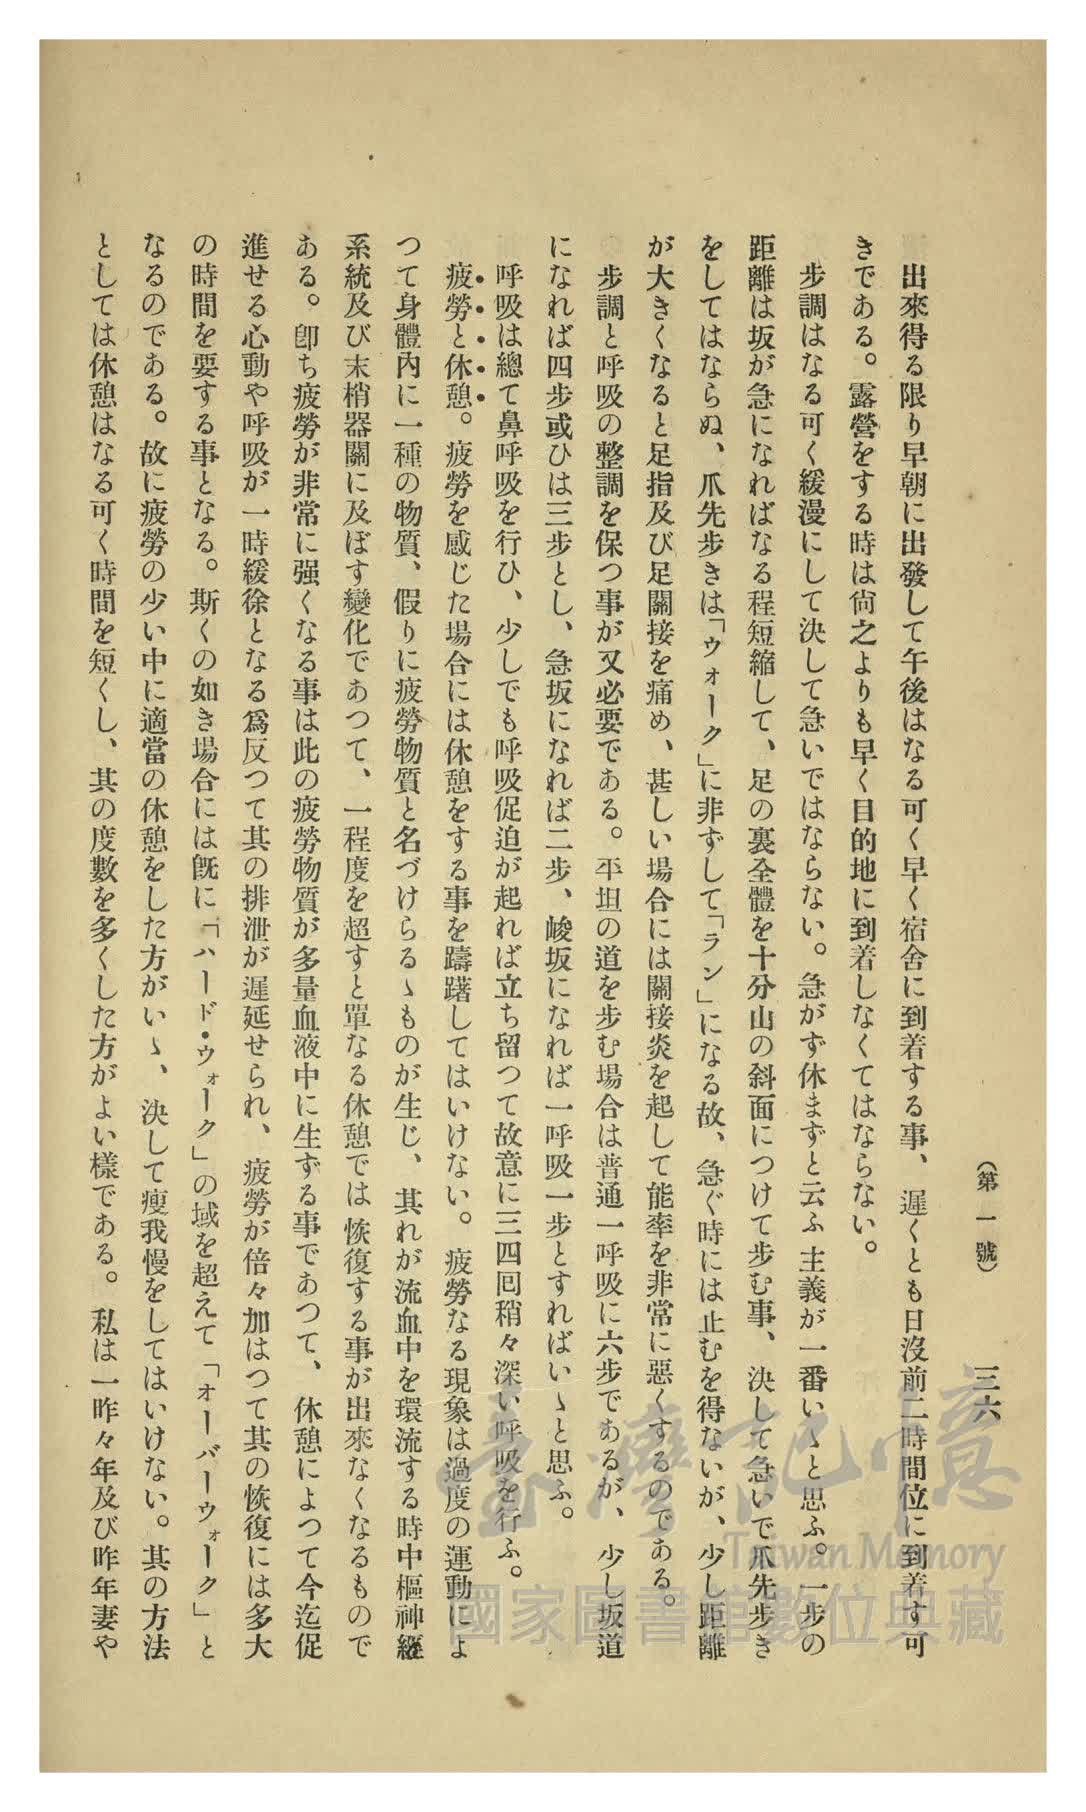 （第一號）　三六
出來得る限り早朝に出發して午後はなる可く早く宿舍に到着する事、遲くとも日沒前二時間位に到着す可
きである。露營をする時は尙之よりも早く目的地に到着しなくてはならない。
步調はなる可く緩漫にして決して急いではならない。急がず休まずと云ふ主義が一番いゝと思ふ。一步の
距離は坂が急になればなる程短縮して、足の裏全體を十分山の斜面につけて步む事、決して急いで爪先步き
をしてはならぬ、爪先步きは「ウォーク」に非ずして「ラン」になる故、急ぐ時には止むを得ないが、少し距離
が大きくなると足指及び足關接を痛め、甚しい場合には關接炎を起して能率を非常に惡くするのである。
步調と呼吸の整調を保つ事が又必要である。平坦の道を步む場合は普通一呼吸に六步であるが、少し坂道
になれば四步或ひは三步とし、急坂になれば二步、峻坂になれば一呼吸一步とすればいゝと思ふ。
呼吸は總て鼻呼吸を行ひ、少しでも呼吸促迫が起れば立ち留つて故意に三四囘稍々深い呼吸を行ふ。
疲勞と休憩。疲勞を感じた場合には休憩をする事を躊躇してはいけない。疲勞なる現象は過度の運動によ
つて身體內に一種の物質、假りに疲勞物質と名づけらるゝものが生じ、其れが流血中を環流する時中樞神經
系統及び末梢器關に及ぼす變化であつて、一程度を超すと單なる休憩では恢復する事が出來なくなるもので
ある。卽ち疲勞が非常に强くなる事は此の疲勞物質が多量血液中に生ずる事であつて、休憩によつて今迄促
進せる心動や呼吸が一時緩徐となる爲反つて其の排泄が遲延せられ、疲勞が倍々加はつて其の恢復には多大
の時間を要する事となる。斯くの如き場合には旣に「ハード・ウォーク」の域を超えて「オーバーウォーク」と
なるのである。故に疲勞の少い中に適當の休憩をした方がいゝ、決して瘦我慢をしてはいけない。其の方法
としては休憩はなる可く時間を短くし、其の度數を多くした方がよい樣である。私は一昨々年及び昨年妻や
臺灣記憶
Taiwan Memory
國家圖書館數位典藏